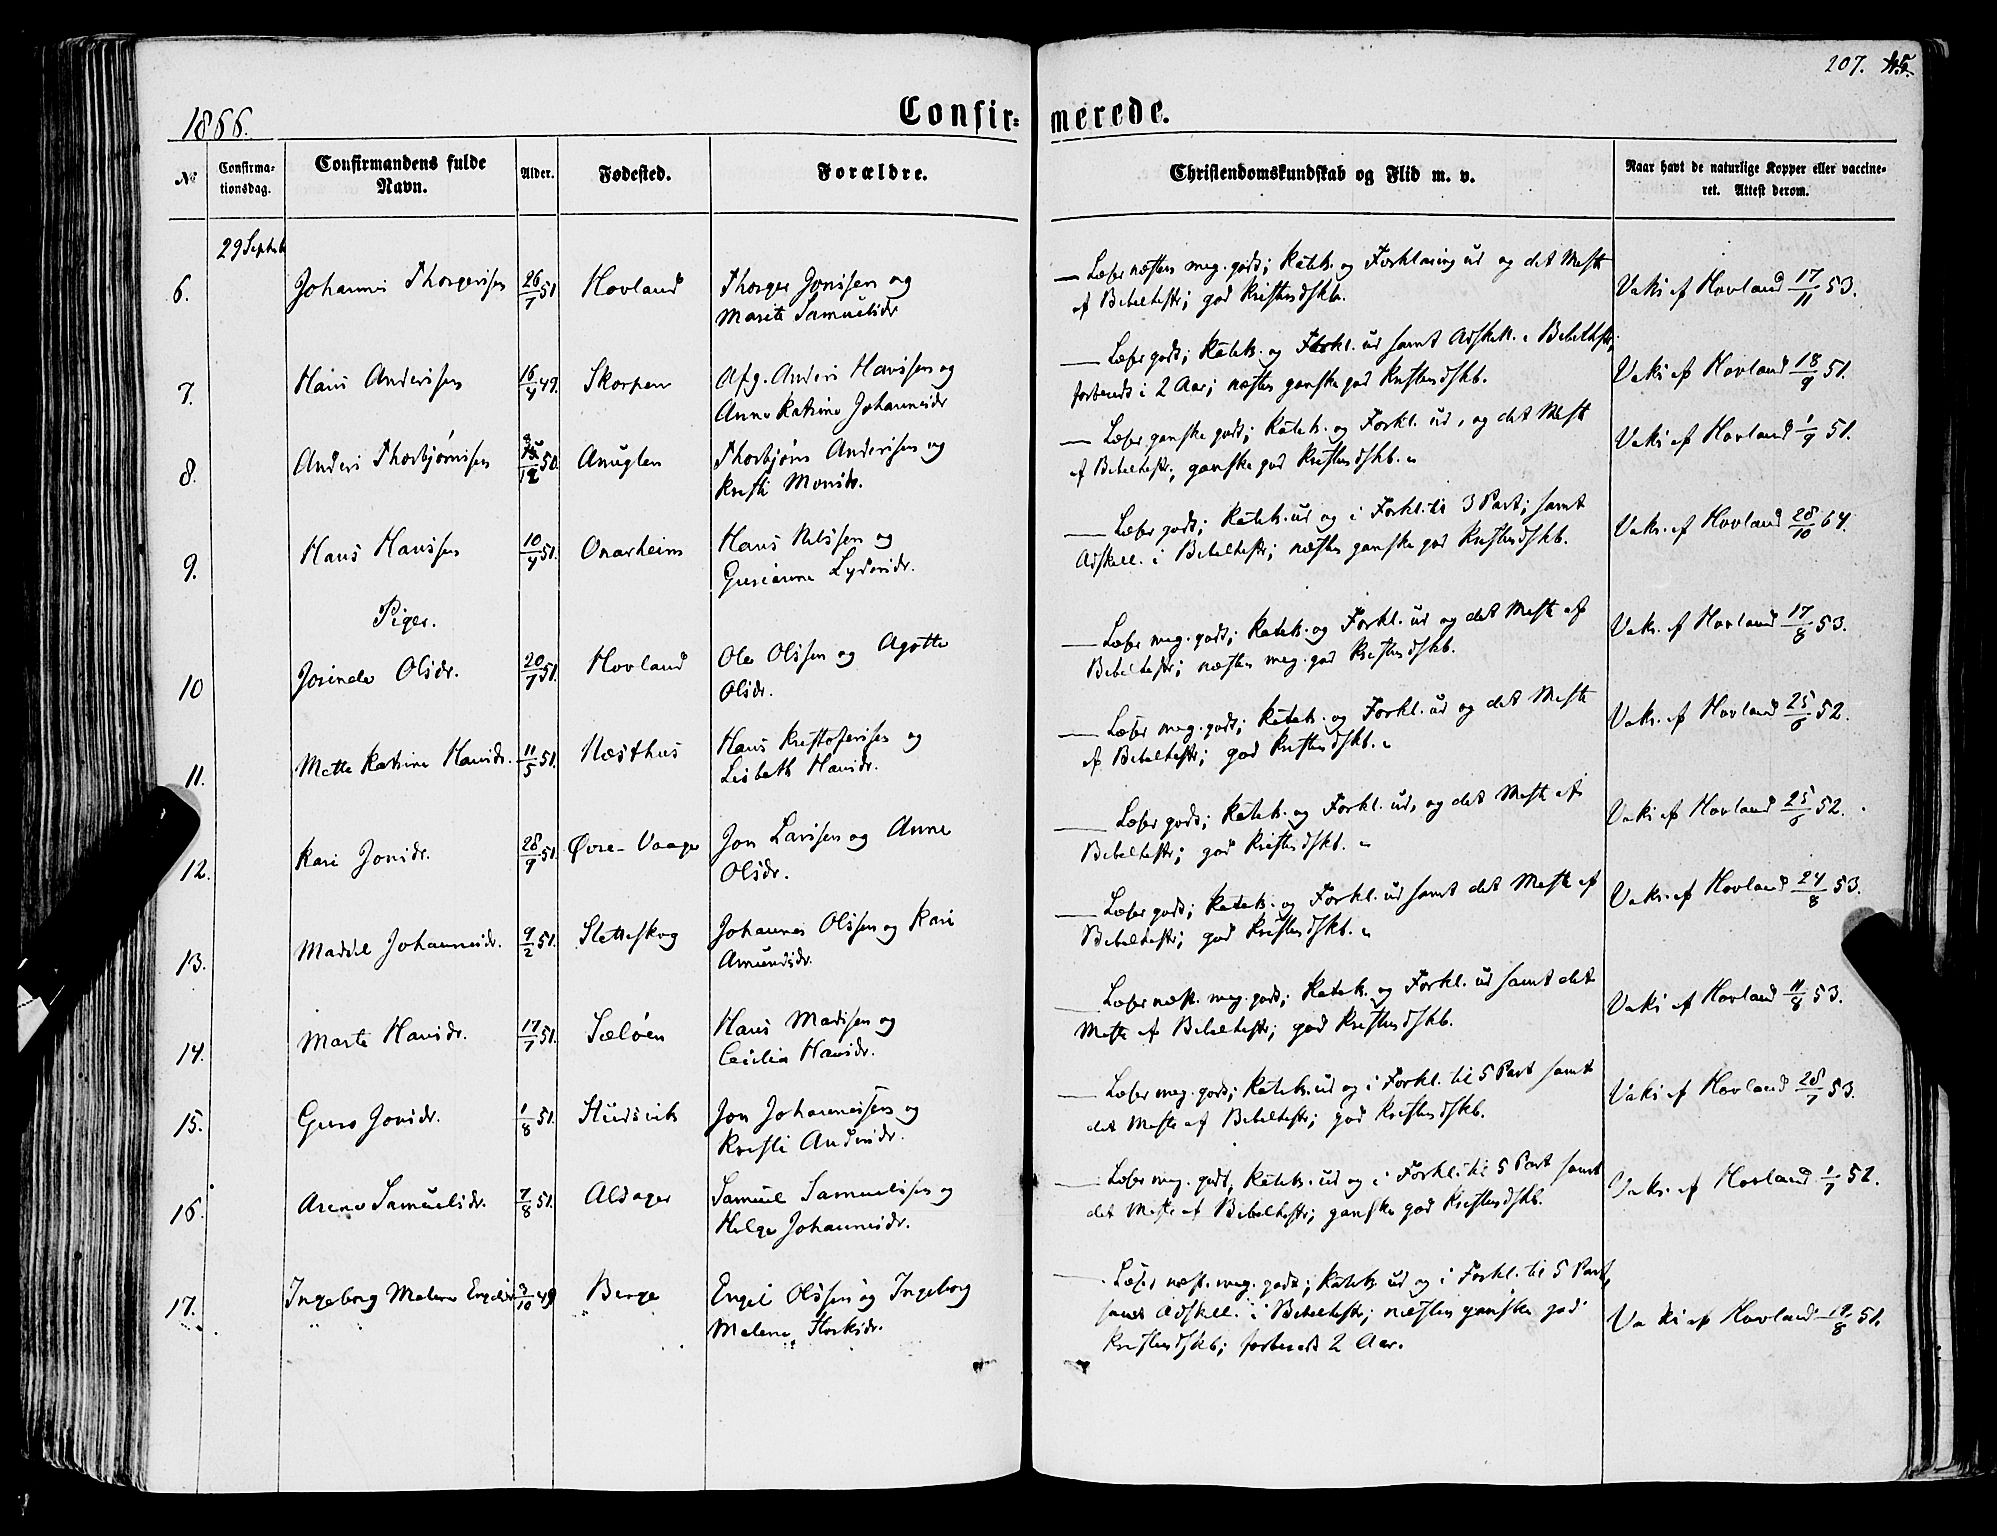 207. 45.
1866.
Confir= merede.
No
Confirma-
tionsdag.
Confirmandens fulde
Navn.
Alder.
Fødested.
Forældre.
Christendomskundskab og Flid m. v.
Naar havt de naturlige Kopper eller vaccine-
ret. Attest derom.
29 Septbr
6. Johannes Thorgersen 26/7 51. Hovland Thorger Jonssen og
Marita Samuelsdr
— Læser næsten meg. godt; Katek. og Forklaring ud og det Meste
af Bibelhistr; god Kristendskb.
Vaks af Hovland 17/11 53.
7. Hans Anderssen 16/4 49. Skorpen Afg. Anders Hanssen og
Anna Katrina Johannesdr
— Læser godt; Katek. og Forkl. ud samt Adskill. i Bibelhistr;
forberedt i 2 Aar; næsten ganske god Kristendskb.
Vaks af Hovland 18/9 51.
8. Anders Thorbjørnsen 50. Anuglen Thorbjørn Anderssen og
Kristi Monsdr.
— Læser ganske godt; Katek. og Forkl. ud, og det Meste
af Bibelhistr; ganske god Kristendskb.
Vaks af Hovland 1/9 51.
9. Hans Hanssen 10/4 51. Onarheim Hans Nilssen og
Gurianna Lydersdr.
— Læser godt; Katek. ud og i Forkl. til 3 Part; samt
Adskill. i Bibelhistr; næsten ganske god Kristendskb.
Vaks. af Hovland 28/10 64.
Piger.
10 Josinda Olsdr. 20/7 51. Hovland Ole Olssen og Agotte
Olsdr.
— Læser meg. godt; Katek. og Forkl. ud og det Meste af
Bibelhistr; næsten meg. god Kristendskb.
Vaks. af Hovland 17/8 53.
11. Mette Katrina Hansdr. 11/5 51. Næsthus Hans Kristofersen og
Lisbeth Hansdr.
— Læser meg. godt; Katek. og Forkl. ud og det Meste
af Bibelhistr; god Kristendskb.
Vaks. af Hovland 25/6 52.
12. Kari Jonsdr. 28/9 51. Øvre-Vaage Jon Larssen og Anna
Olsdr.
— Læser godt; Katek. og Forkl. ud, og det Meste af
Bibelhistr; god Kristendskb.
Vaks af Hovland 25/6 52.
13. Maddel Johannesdr. 9/2 51. Sletteskog Johannes Olssen og Kari
Amundsdr.
— Læser godt; Katek. og Forkl. ud samt det Meste af
Bibelhistr; god Kristendskb.
Vaks. af Hovland 24/8 53.
14. Marta Hansdr. 17/7 51. Sæløen Hans Madssen og
Cecilia Hansdr.
— Læser næst. meg. godt; Katek. og Forkl. ud samt det
Meste af Bibelhistr; god Kristendskb.
Vaks af Hovland 11/8 53.
15. Guro Jonsdr. 1/8 51. Husevik Jon Johannessen og
Kristi Andersdr.
— Læser meg. godt; Katek. ud og i Forkl. til 5 Part samt
det Meste af Bibelhistr; god Kristendskb.
Vaks af Hovland 28/7 53.
16. Samuelsdr. 7/8 51. Aldager Samuel Samuelssen og
Helga Johannesdr.
— Læser meg. godt; Katek. ud og i Forkl. til 5 Part samt
det Meste af Bibelhistr; ganske god Kristendskb.
Vaks. af Hovland 1/7 52.
17. Ingeborg Malena Engelsdr 3/10 49 Berge Engel Olssen og Ingeborg
Malena
— Læser næst. meg. godt; Katek. ud og i Forkl. til 5 Part,
samt Adskill. i Bibelhistr; næsten ganske god
Kristendskb; forberedt 2 Aar.
Vaks af Hovland 19/8 51.